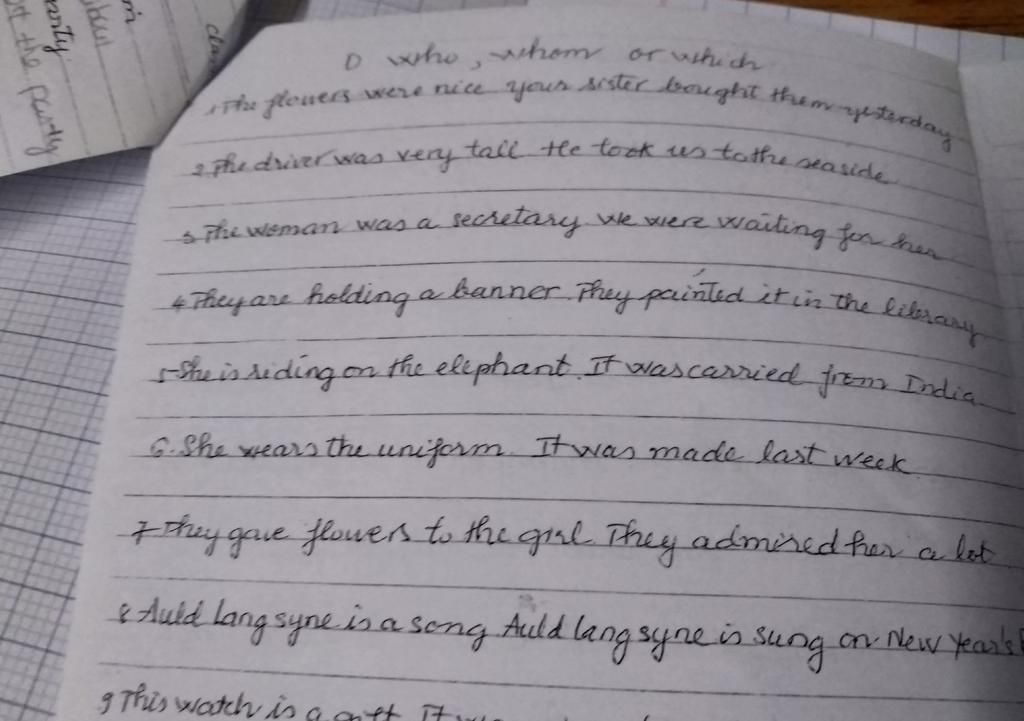 D who, whom or which
1 The flowers were nice your sister bought them yesterday
2 The driver was very tall He took us to the seaside
3 The woman was a secretary we were waiting for her
4 They are holding a banner. They painted it in the library
5 She is riding on the elephant. It was carried from India
6. She wears the uniform. It was made last week
7 They gave flowers to the girl They admired her a lot
8 Auld lang syne is a song Auld lang syne is sung on New Year's
9 This watch is a gift It
the party